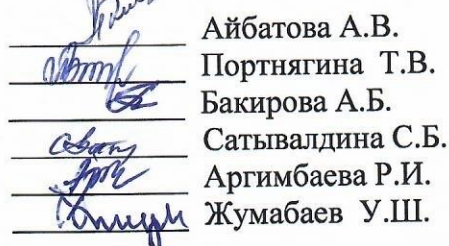 Айбатова А.В.
Портнягина Т.В.
Бакирова А.Б.
Сатывалдина С.Б.
Аргимбаева Р.И.
Жумабаев У.Ш.